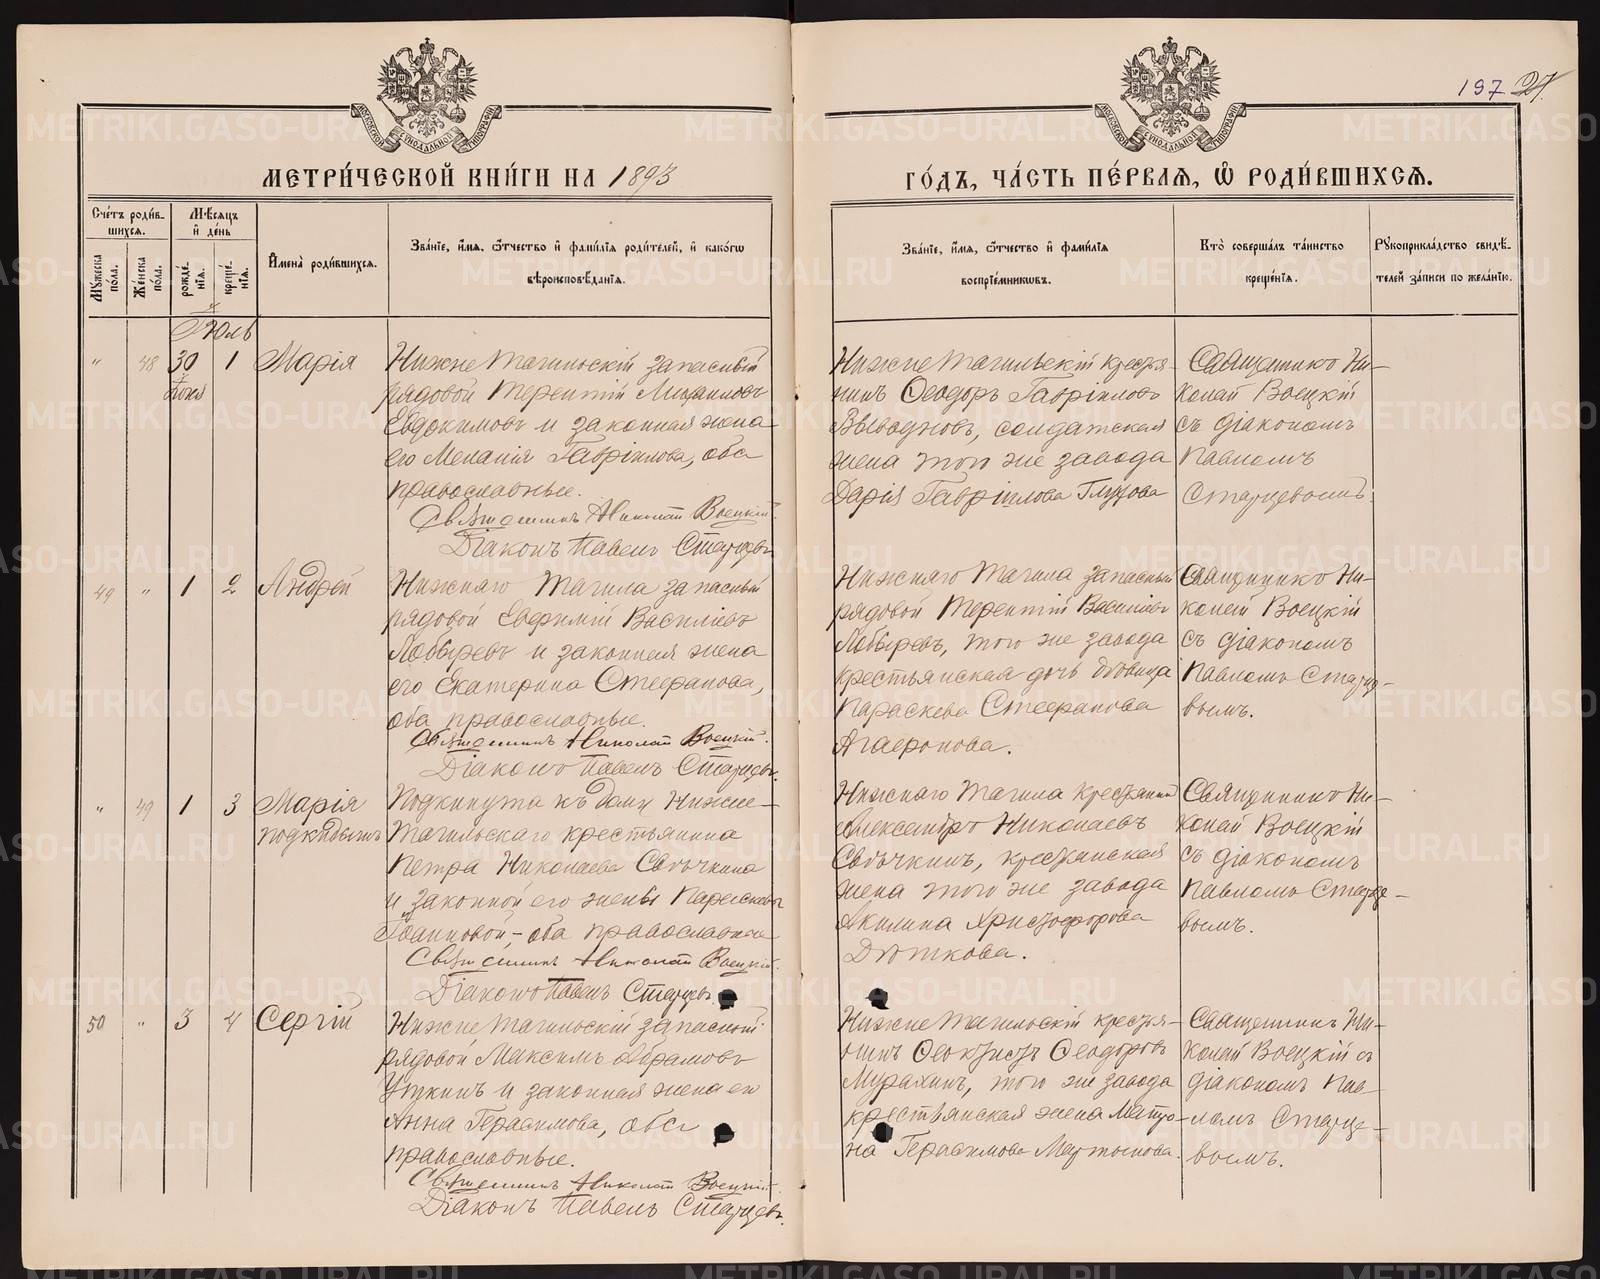 197 27
МОСКОВСКОЙ СѴНОДАЛЬНОЙ ТИПОГРАФІИ
МОСКОВСКОЙ СѴНОДАЛЬНОЙ ТИПОГРАФІИ
МЕТРИ́ЧЕСКОЙ КНИ́ГИ НА 1893
ГО́ДЪ, ЧА́СТЬ ПЕ́РВАЯ, Ѡ҆ РОДИ́ВШИХСЯ.
Сче́тъ роди́в-
шихся.
Мꙋ́жеска по́ла.
Же́нска по́ла.
Мѣ́сяцъ
и҆ де́нь
рожде́-
нїя.
креще́-
нїя.
И҆мена̀ роди́вшихся.
Зва́нїе, и҆́мя, ѻ҆́тчество и҆ фами́лїя роди́телей, и҆ како́гѡ
вѣроисповѣ́данїя.
Зва́нїе, и҆́мя, ѻ҆́тчество и҆ фами́лїя
воспрїе́мникѡвъ.
Кто̀ соверша́лъ та́инство
креще́нїя.
Рꙋкоприкла́дство свидѣ́-
телей за́писи по жела́нїю.
Іюль
" 48 30 1 Марія
Іюня
Нижне Тагильскій запасный
рядовой Терентій Михаиловъ
Евдокимовъ и законная жена
его Меланія Гавріилова, оба
православные.
Священникъ Николай Воецкій.
Діаконъ Павелъ Старцевъ.
Нижне Тагильскій крестья-
нинъ Ѳеодоръ Гавріиловъ
солдатская
жена того же завода
Дарія Гавріилова Глухова
Священникъ Ни-
колай Воецкій
съ діакономъ
Павломъ
Старцевымъ.
49 " 1 2 Андрей
Нижняго Тагила запасный
рядовой Евфимій Василіевъ
Лобыревъ и законная жена
его Екатерина Стефанова,
оба православные.
Священникъ Николай Воецкій.
Діаконъ Павелъ Старцевъ.
Нижняго Тагила запасный
рядовой Терентій Василіевъ
Лобыревъ, того же завода
крестьянская дочь дѣвица
Параскева Стефанова
Агафонова.
Священникъ Ни-
колай Воецкій
съ діакономъ
Павломъ Старце-
вымъ.
" 49 1 3 Марія
подкидышъ
Подкинута къ дому Нижне-
Тагильскаго крестьянина
Петра Николаева Свѣчкина
и законной его жены Параскевы
Іоанновой, - оба православные
Священникъ Николай Воецкій.
Діаконъ Павелъ Старцевъ.
Нижняго Тагила крестьянинъ
Александръ Николаевъ
Свѣчкинъ, крестьянская
жена того же завода
Акилина Христофорова
Дѣткова.
Священникъ Ни-
колай Воецкій
съ діакономъ
Павломъ Старце-
вымъ.
50 " 3 4 Сергій
Нижне Тагильскій запасной
рядовой Максимъ Абрамовъ
Уткинъ и законная жена его
Анна Герасимова, оба
православные.
Священникъ Николай Воецкій.
Діаконъ Павелъ Старцевъ.
Нижне Тагильскій крестья-
нинъ Ѳеоктистъ Ѳеодоровъ
Мурахинъ, того же завода
крестьянская жена Матро-
на Герасимова Мартынова.
Священникъ Ни-
колай Воецкій съ
діакономъ Пав-
ломъ Старце-
вымъ.
METRIKI.GASO-URAL.RU